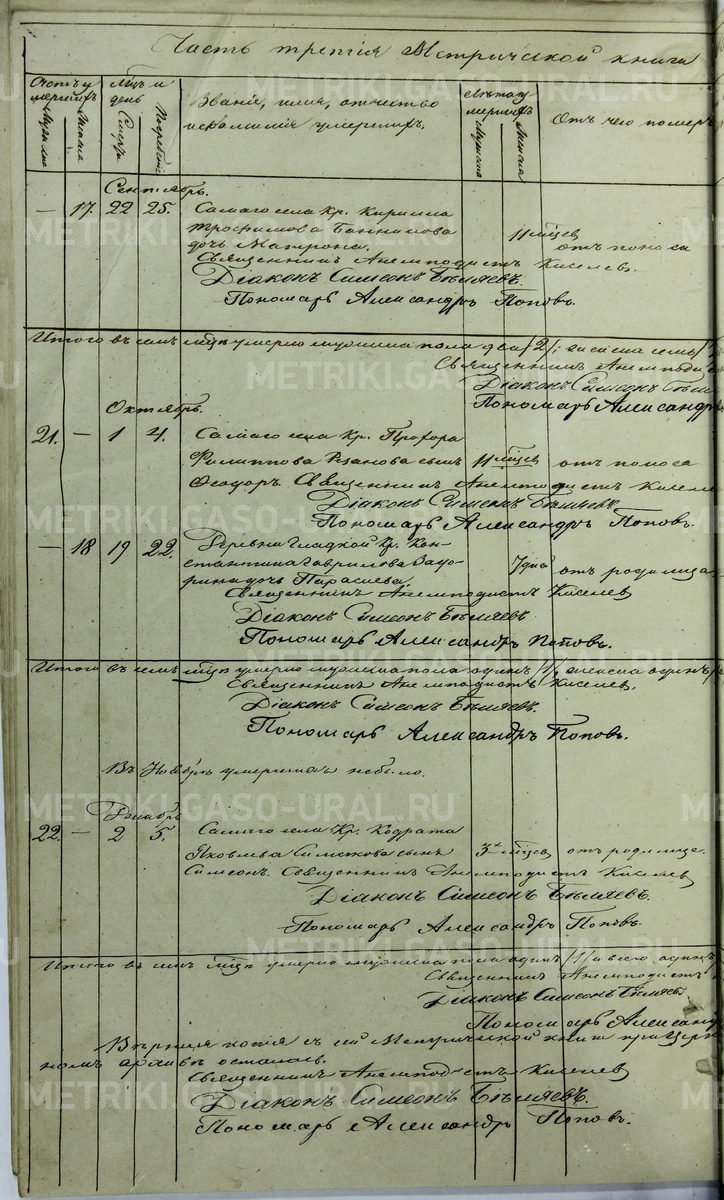 Часть третія Метрической книги
Счетъ умершихъ
Мѣсяцъ и день
Званіе, имя, отчество и фамилія умершихъ.
Лѣта умершихъ
Отъ чего померъ
Мужска Женска Смерти Погребенія Мужска Женска
Сентябрь.
— 17. 22 25. Самаго села Кр. Кирилла
Трофимова
дочь Матрона. 11 мѣсяцев отъ поноса
Священникъ Анемподистъ Киселев.
Діаконъ Симеонъ Бѣляевъ.
Пономарь Александръ Поповъ.
Итого въ семъ мѣсяцѣ умерло мужеска пола два /2/, женска семь
Священникъ Анемподи
Діаконъ Симеонъ Бѣля
Пономарь Александръ
Октябрь.
21. — 1 4. Самаго села Кр. Прохора
Филиппова сынъ 11 мѣсяцев отъ поноса
Ѳеодоръ. Священникъ Анемподистъ Киселе
Діаконъ Симеонъ Бѣляевъ
Пономарь Александръ Поповъ.
— 18 19 22. Деревни Гладкой Кр. Кон-
стантина Гаврилова
дочь Параскева. 7 дней отъ родимца
Священникъ Анемподистъ Киселев
Діаконъ Симеонъ Бѣляевъ
Пономарь Александръ Поповъ.
Итого въ семъ мѣсяцѣ умерло мужеска пола одинъ /1/, женска одинъ
Священникъ Анемподистъ Киселев.
Діаконъ Симеонъ Бѣляевъ.
Пономарь Александръ Поповъ.
Въ Ноябрѣ умершихъ небыло.
Декабрь
22. — 2 5. Самаго села Кр. Кодрата
Яковлева сынъ 3х мѣсяцев отъ родимца.
Симеонъ. Священникъ Анемподистъ Киселев
Діаконъ Симеонъ Бѣляевъ.
Пономарь Александръ Поповъ.
Итого въ семъ мѣсяцѣ умерло мужеска пола одинъ /1/ а всего одинъ
Священникъ Анемподистъ
Діаконъ Симеонъ Бѣляевъ
Пономарь Александ
Вѣрная копія съ сей Метрической книги при Церк
номъ архивѣ осталась.
Священникъ Анемподистъ Киселев
Діаконъ Симеонъ Бѣляевъ.
Пономарь Александръ Поповъ.
METRIKI.GASO-URAL.RU